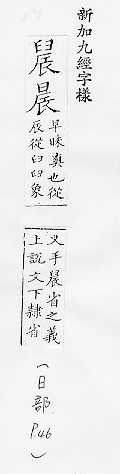 新加九經字樣
晨晨
早昧爽也從
辰從臼臼象
叉手晨省之義
上說文下隸省
(日部 P.46)